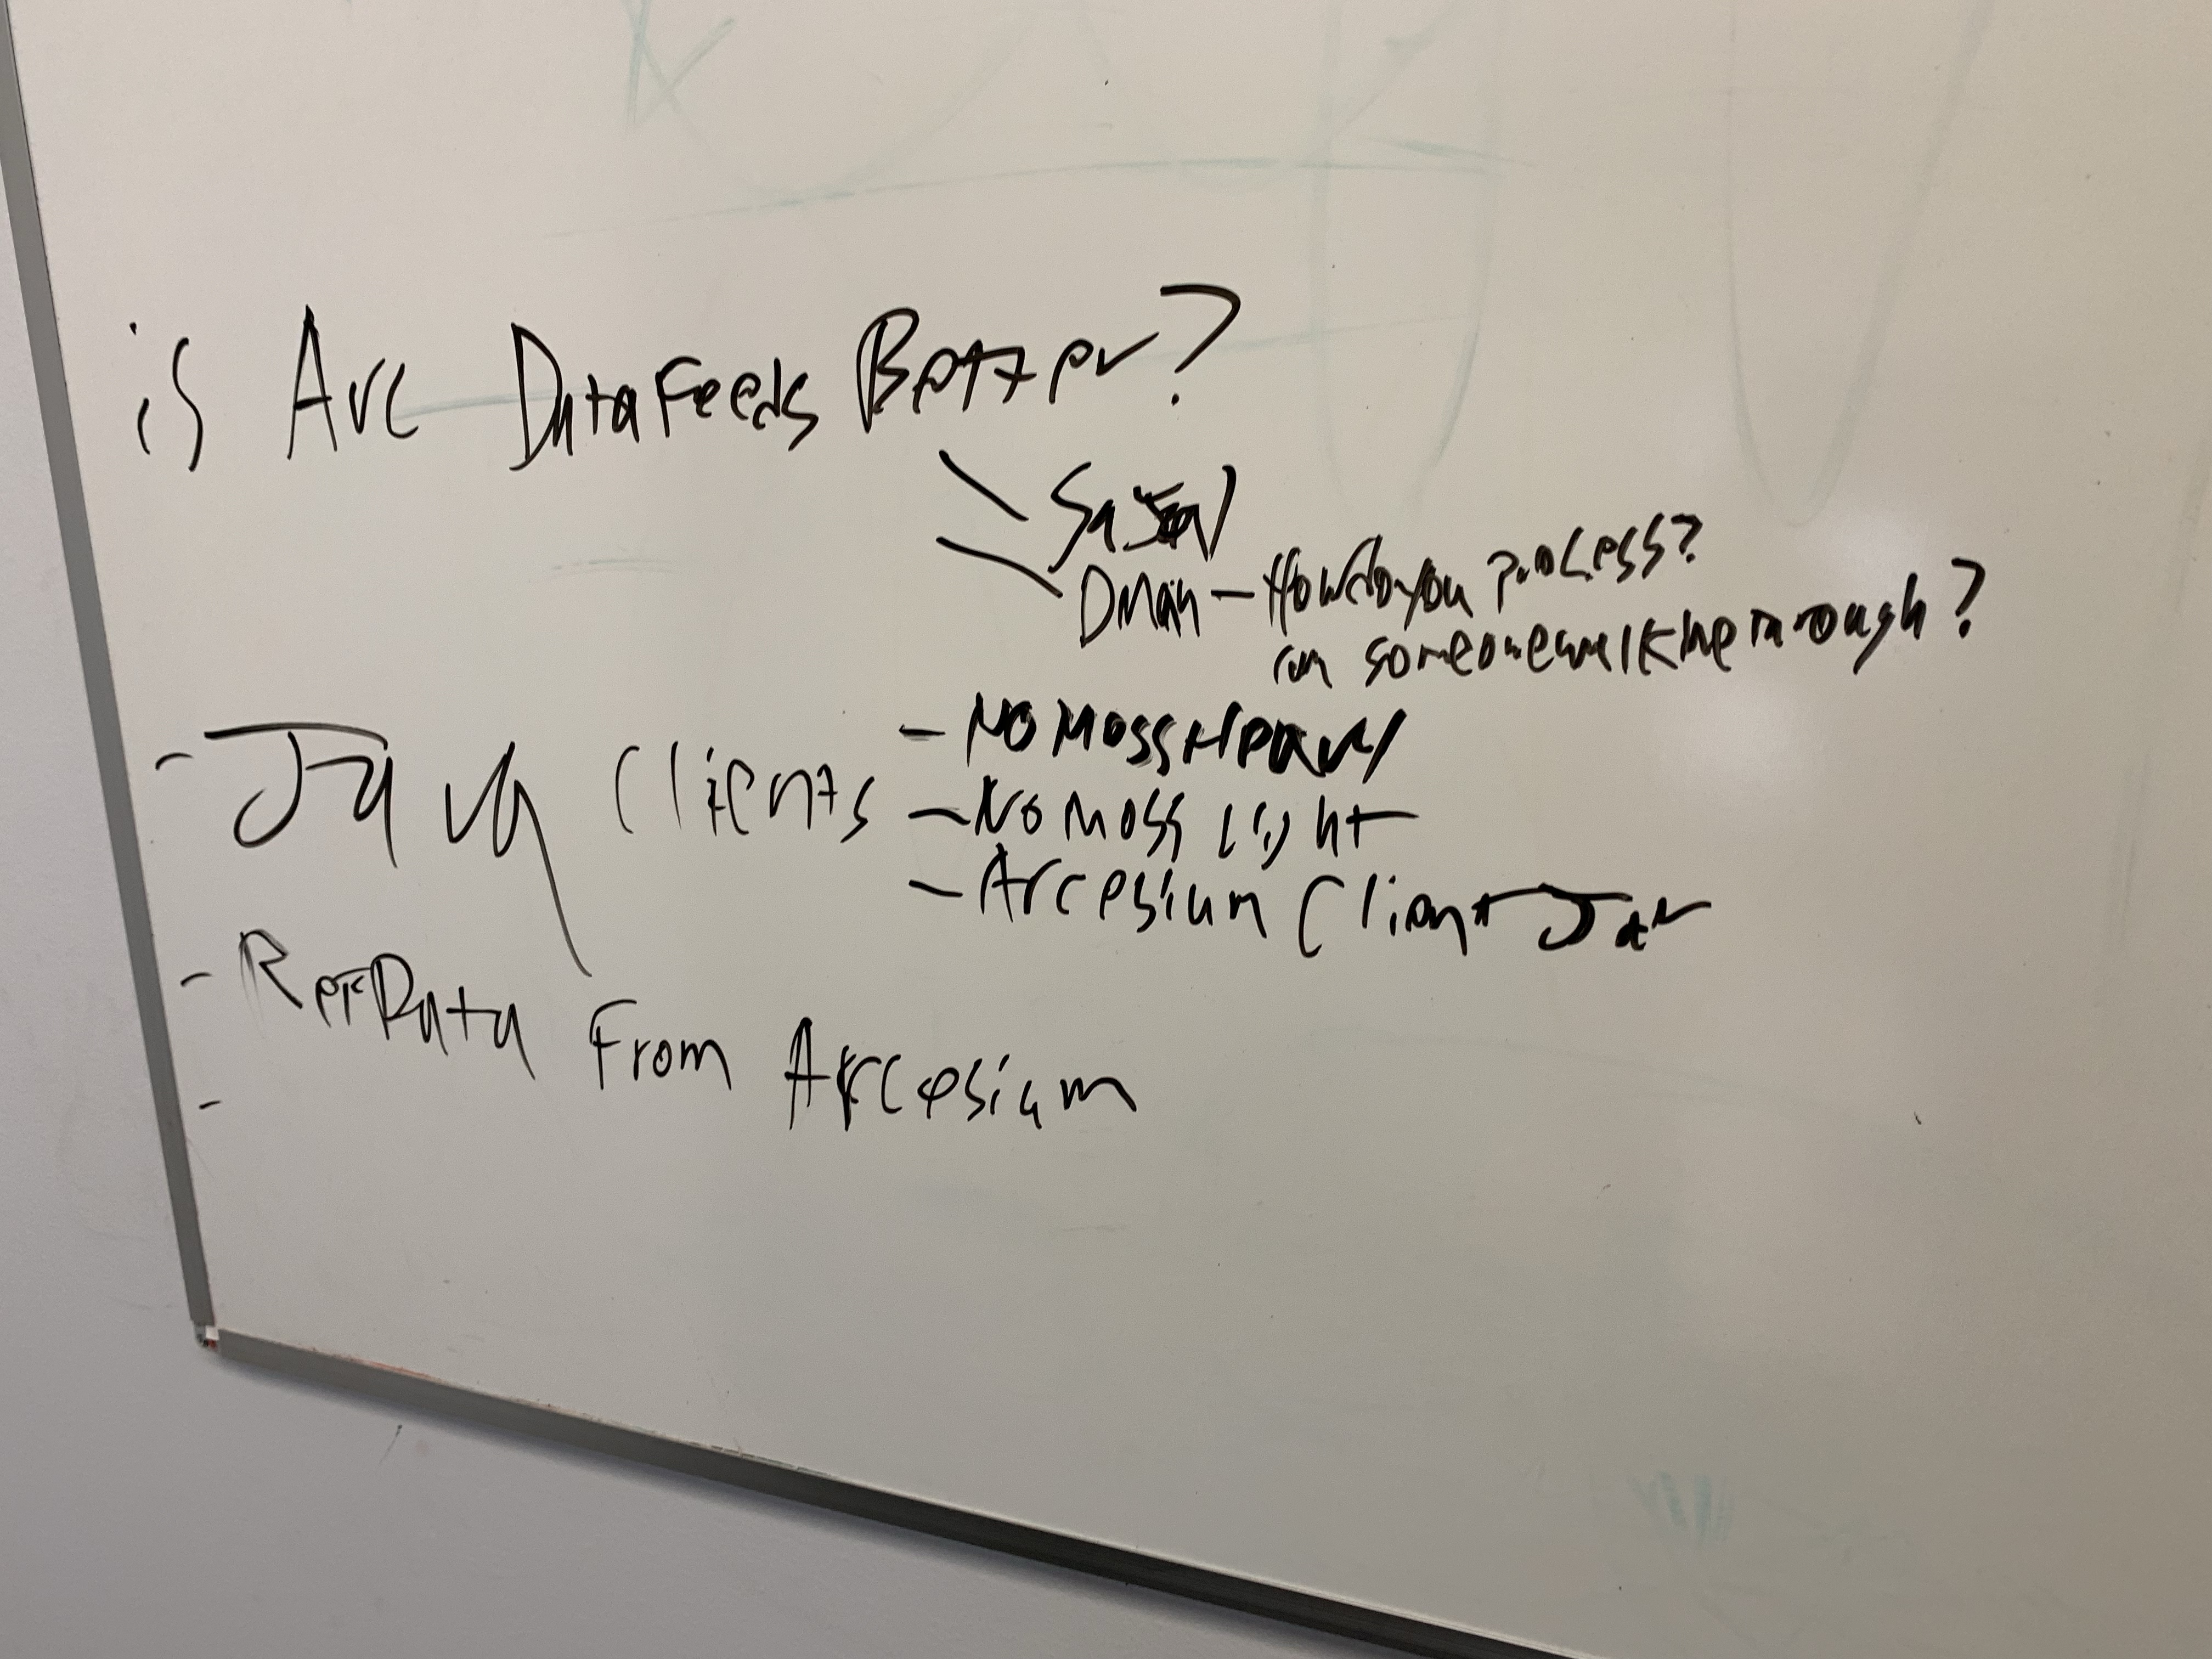 is Arc DataFeeds Better?
DMain - How do you process?
can someone walk me through?
- Java Clients
- No Moss Heavy
- No Moss Light
- Arcesium Client Jar
- RefData From Arcesium
-